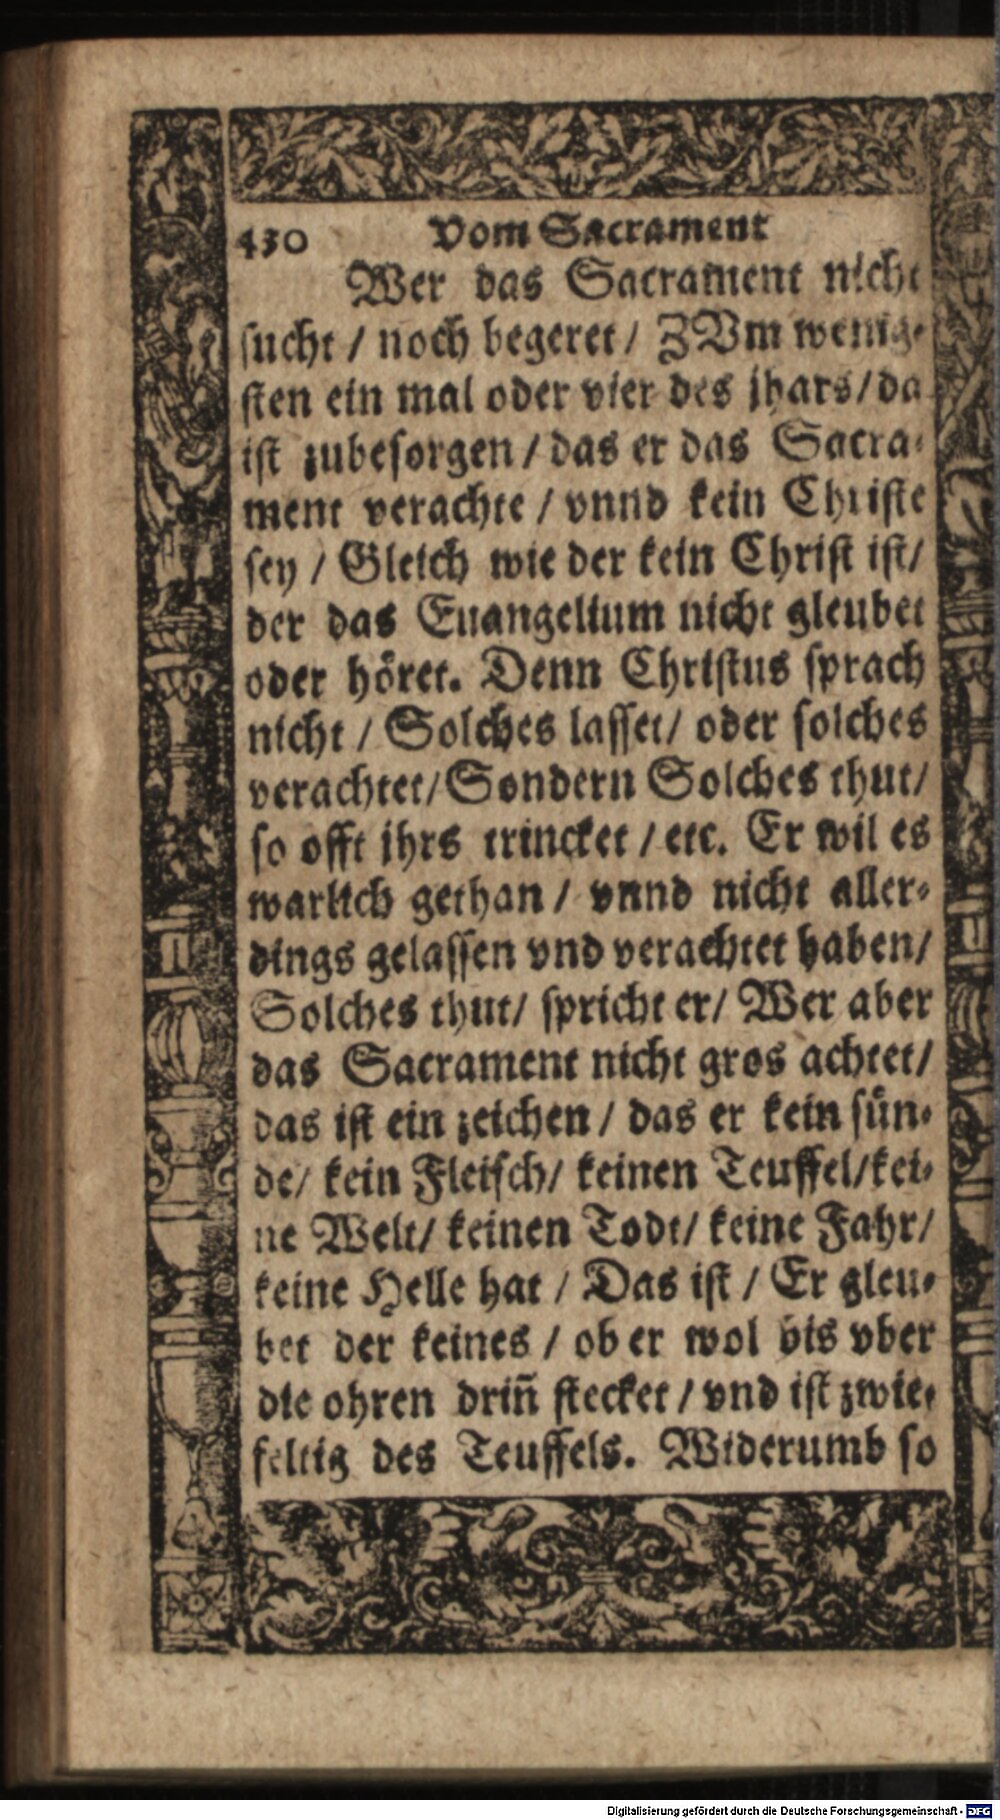 430 Vom Sacrament
Wer das Sacrament nicht
sucht / noch begeret / ZVm wenig-
sten ein mal oder vier des jhars / da
ist zubesorgen / das er das Sacra-
ment verachte / vnnd kein Christe
sey / Gleich wie der kein Christ ist /
der das Euangelium nicht gleubet
oder höret. Denn Christus sprach
nicht / Solches lasset / oder solches
verachtet / Sondern Solches thut /
so offt jhrs trincket / etc. Er wil es
warlich gethan / vnnd nicht aller-
dings gelassen vnd verachtet haben /
Solches thut / spricht er / Wer aber
das Sacrament nicht gros achtet /
das ist ein zeichen / das er kein sün-
de / kein Fleisch / keinen Teuffel / kei-
ne Welt / keinen Todt / keine Fahr /
keine Helle hat / Das ist / Er gleu-
bet der keines / ob er wol bis vber
die ohren driñ stecket / vnd ist zwie-
feltig des Teuffels. Widerumb so
Digitalisierung gefördert durch die Deutsche Forschungsgemeinschaft - DFG